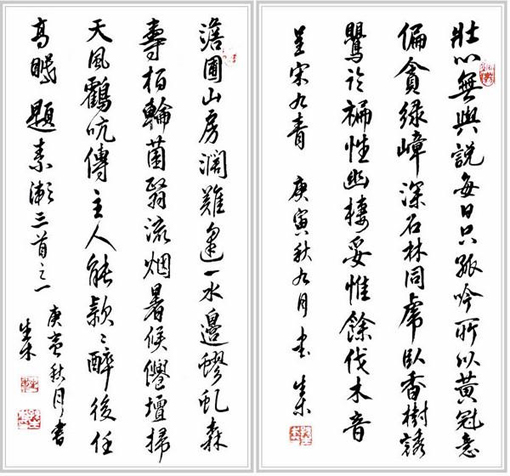 壯心無與說每日只孤吟所以黃冠意
偏貪綠嶂深石林同虎臥香樹誘
鸎吟褊性幽棲妥惟餘伐木音
呈宋九青 庚寅秋九月書
澹圃山房濶難逢一水邊蟉虬森
壽栢輪菌翳流烟暑候僊壇掃
天風鶴吭傳主人能款〻醉後任
高眠 題素漸三首之一
庚寅秋月書